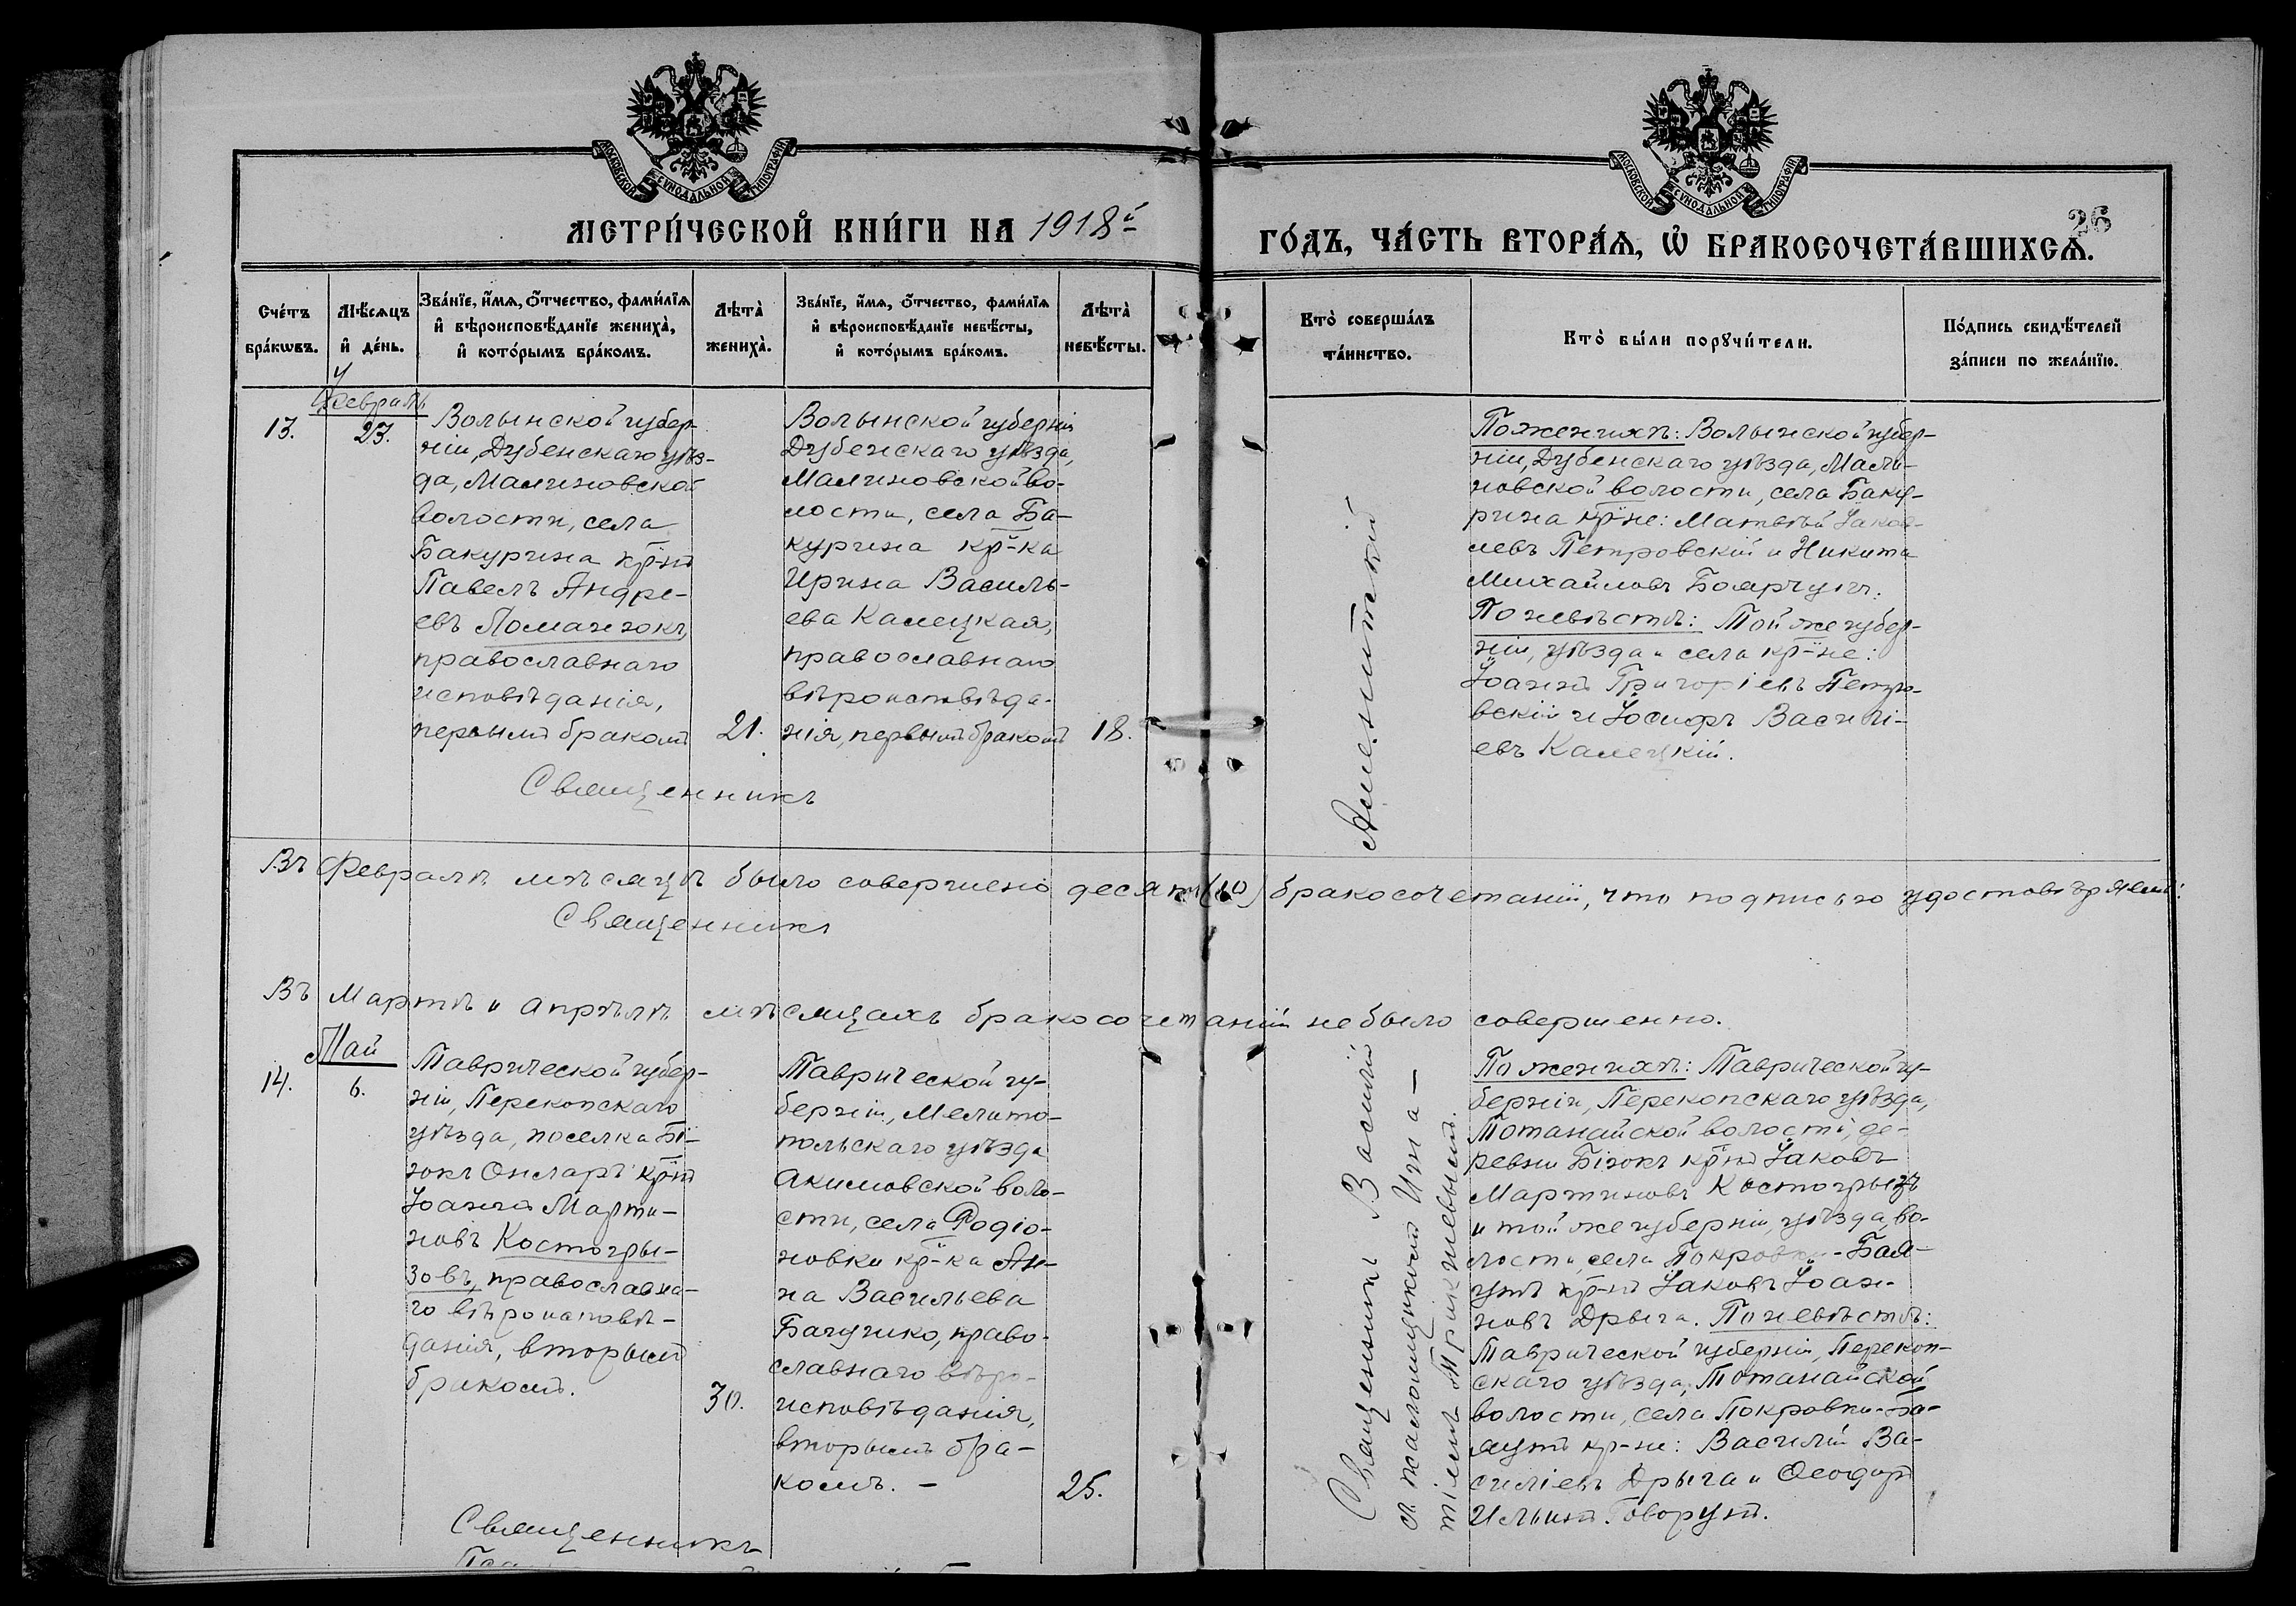 МОСКОВСКОЙ СѴНОДАЛЬНОЙ ТИПОГРАФІИ
МОСКОВСКОЙ СѴНОДАЛЬНОЙ ТИПОГРАФІИ
26
МЕТРИ́ЧЕСКОЙ КНИ́ГИ НА 1918й
ГО́ДЪ, ЧА́СТЬ ВТОРА́Ѧ, Ѡ҆ БРАКОСОЧЕТА́ВШИХСѦ.
Сче́тъ
бра́кѡвъ.
Мѣ́сѧцъ
и҆ де́нь.
Зва́нїе, и҆́мѧ, ѻ҆́тчество, фами́лїѧ
и҆ вѣроисповѣ́данїе жениха̀,
и҆ кото́рымъ бра́комъ.
Лѣта̀
жениха̀.
Зва́нїе, и҆́мѧ, ѻ҆́тчество, фами́лїѧ
и҆ вѣроисповѣ́данїе невѣ́сты,
и҆ кото́рымъ бра́комъ.
Лѣта̀
невѣ́сты.
Кто̀ соверша́лъ
та́инство.
Кто̀ бы́ли порꙋчи́тели.
По́дпись свидѣ́телей
за́писи по жела́нїю.
13.
Февраль
23.
Волынской губер-
ніи, Дубенскаго уѣз-
да, Малиновской
волости, села
Бакурина кр-нъ
Павелъ Андре-
евъ Поманзокъ,
православнаго
исповѣданія,
первымъ бракомъ
21.
Волынской губерніи
Дубенскаго уѣзда,
Малиновской во-
лости, села Ба-
курина кр-ка
Ирина Василь-
ева Калецкая,
православнаго
вѣроисповѣда-
нія, первымъ бракомъ
18.
По женихѣ: Волынской губер-
ніи, Дубенскаго уѣзда, Мали-
новской волости, села Баку-
рина кр-не: Матвѣй Іаков-
левъ Петровскій и Никита
Михайловъ Боярчукъ.
По невѣстѣ: Той же губер-
ніи, уѣзда и села кр-не:
Іоаннъ Григоріевъ Петро-
вскій и Іосифъ Василі-
евъ Калецкій.
Священникъ
Въ Февралѣ мѣсяцѣ было совершено десять (10) бракосочетаній, что подписью удостовѣряемъ:
Священникъ
Въ Мартѣ и Апрѣлѣ мѣсяцахъ бракосочетаній не было совершенно.
14.
Май
6.
Таврической губер-
ніи, Перекопскаго
уѣзда, поселка Бі-
юкъ Онларъ кр-нъ
Іоаннъ Марти-
новъ Костогры-
зовъ, православна-
го вѣроисповѣ-
данія, вторымъ
бракомъ.
30.
Таврической гу-
берніи, Мелито-
польскаго уѣзда
Акимовской воло-
сти, села Родіо-
новки кр-ка Ан-
на Васильева
Багучико, право-
славнаго вѣро-
исповѣданія,
вторымъ бра-
комъ. -
25.
Священникъ Василій
съ псаломщикомъ
По женихѣ: Таврической гу-
берніи, Перекопскаго уѣзда,
Тотанайской волости, де-
ревни Біюкъ кр-нъ Іаковъ
Мартиновъ Костогрызъ
и той же губерніи, уѣзда, во-
лости, села Покровки-Бая-
утъ кр-нъ Іаковъ Іоан-
новъ Дрыга. По невѣстѣ:
Таврической губерніи, Перекоп-
скаго уѣзда, Тотанайской
волости, села Покровки-Ба-
яутъ кр-не: Василій Ва-
силіевъ Дрыга и Ѳеодоръ
Ильинъ Говорунъ.
Священникъ